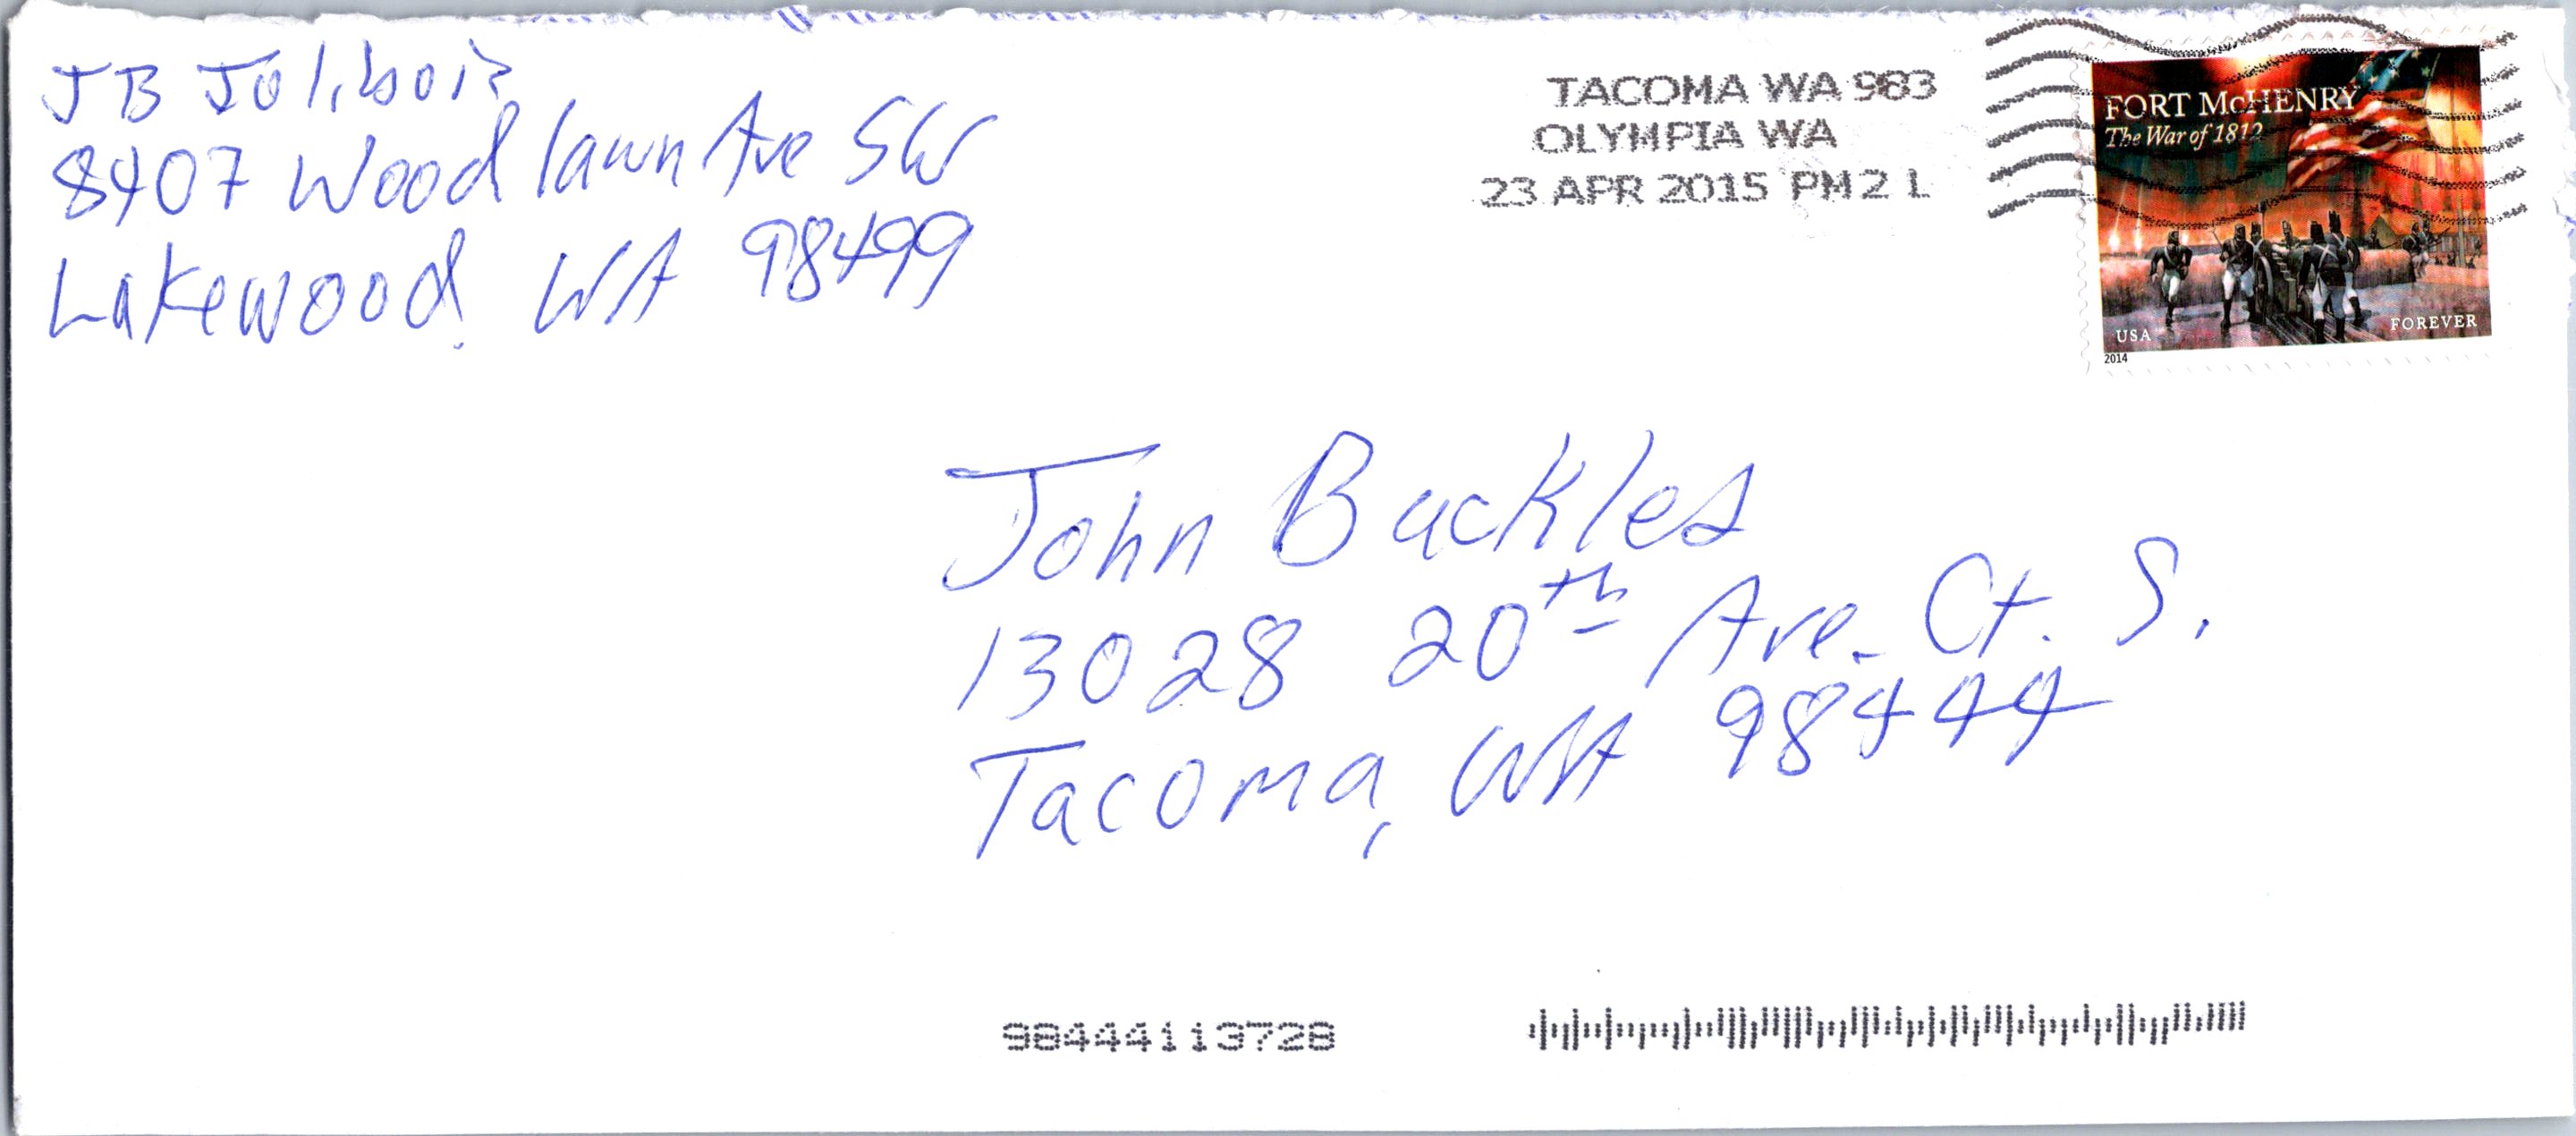 JB Jolibois
8407 Woodlawn Ave SW
Lakewood WA 98499
TACOMA WA 983
OLYMPIA WA
23 APR 2015 PM 2 L
FORT McHENRY
The War of 1812
USA
FOREVER
2014
John Buckles
13028 20th Ave. Ct. S.
Tacoma, WA 98444
98444113728